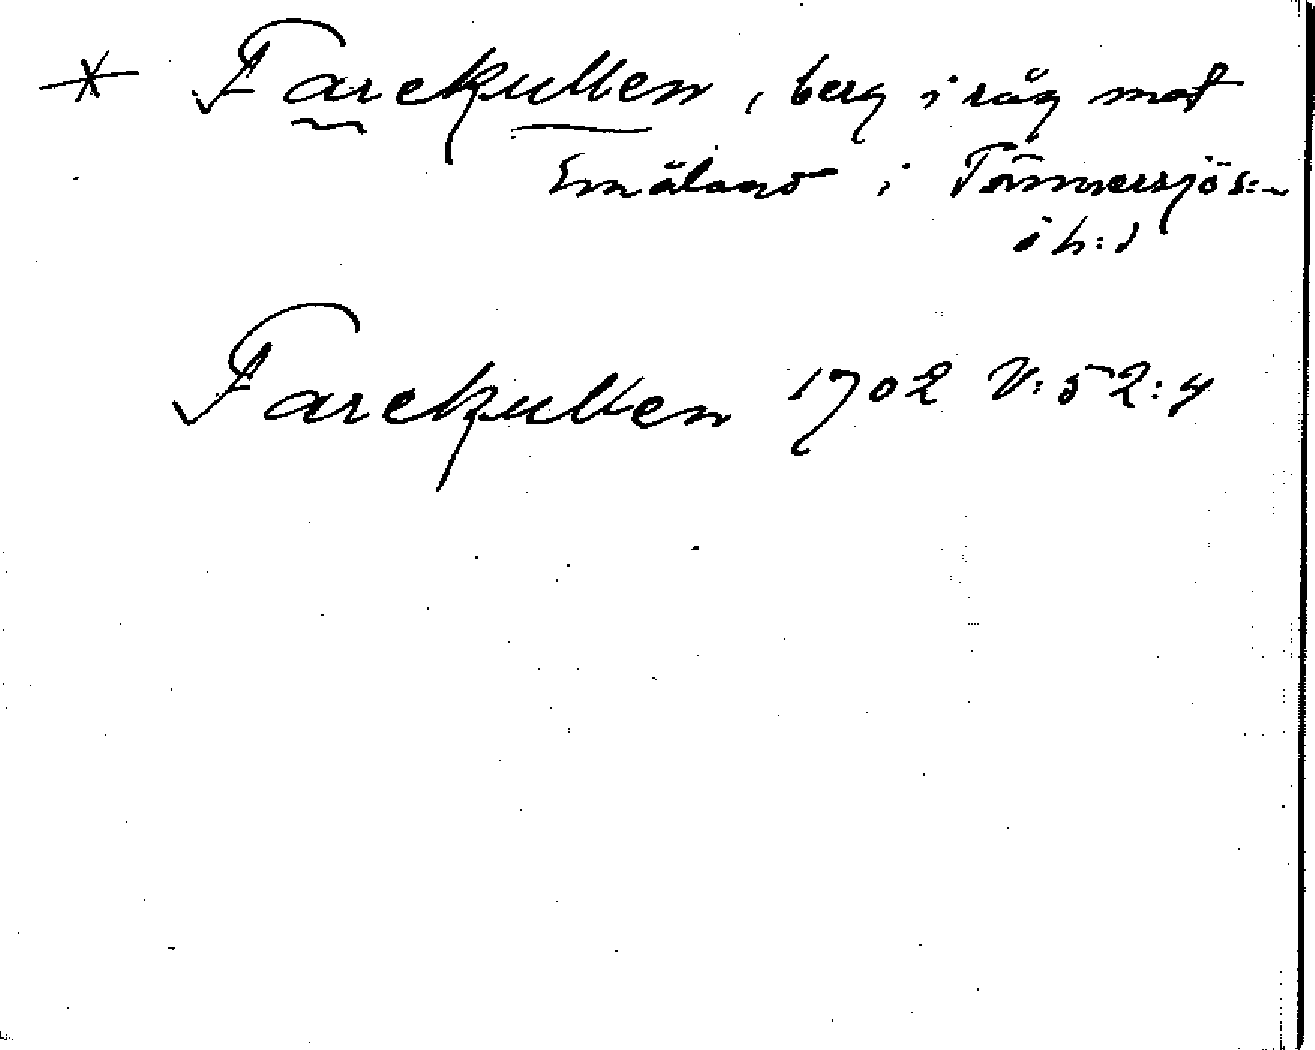 * Farekullen, berg i råg mot
Småland i Tönnersjös:n
i h:d
Farekullen 1702 V:52:4